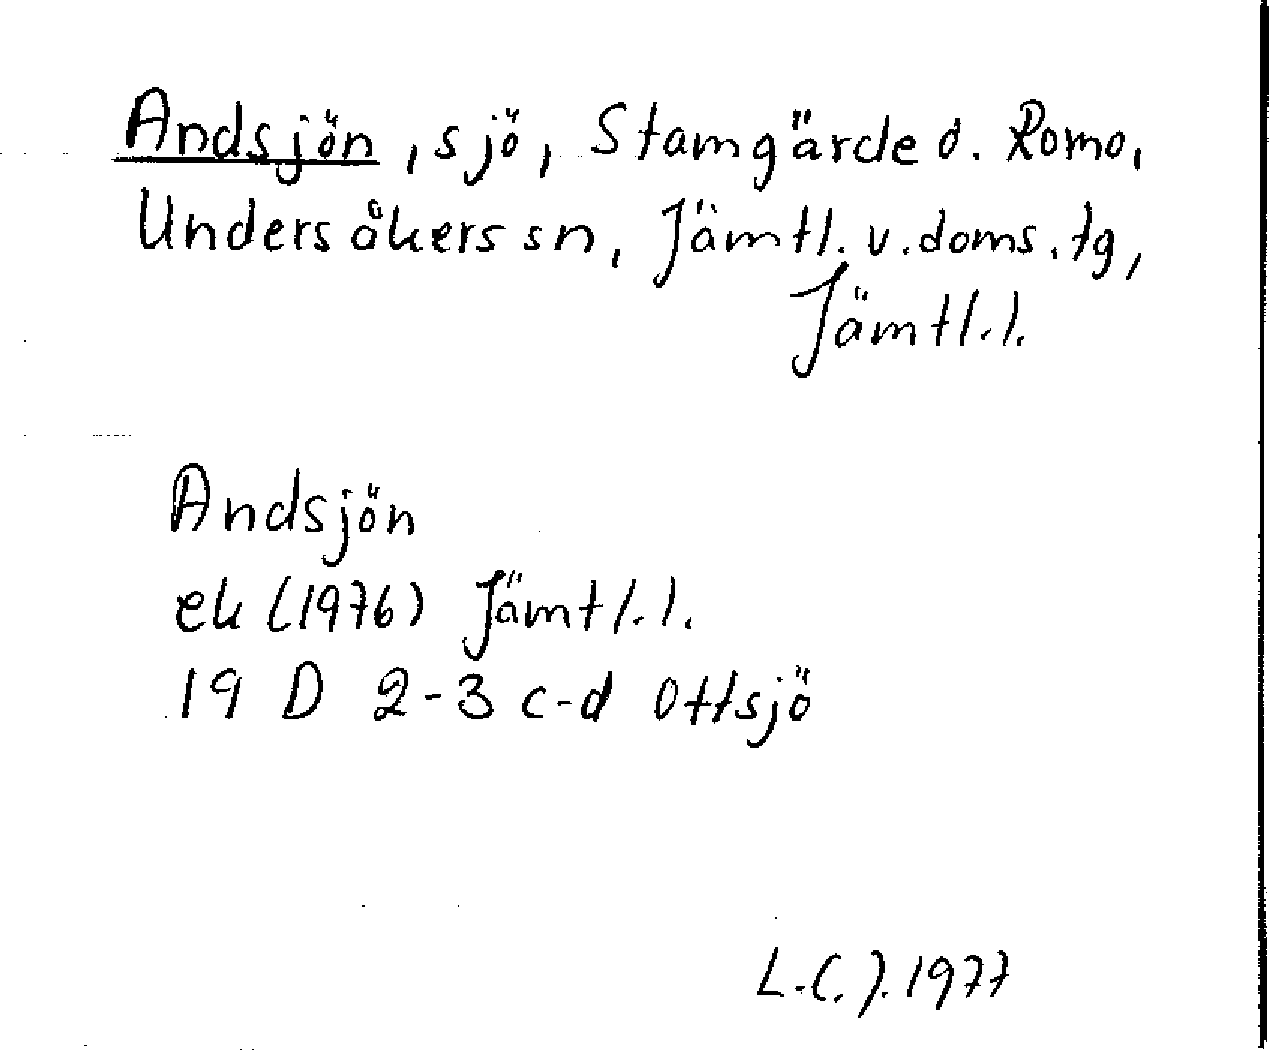 Andsjön, sjö, Stamgärde o. Romo,
Undersåkers sn, Jämtl. v. doms. tg,
Jämtl. l.
Andsjön
ek (1976) Jämtl. l.
19 D 2-3 c-d Ottsjö
L.C.J. 1977